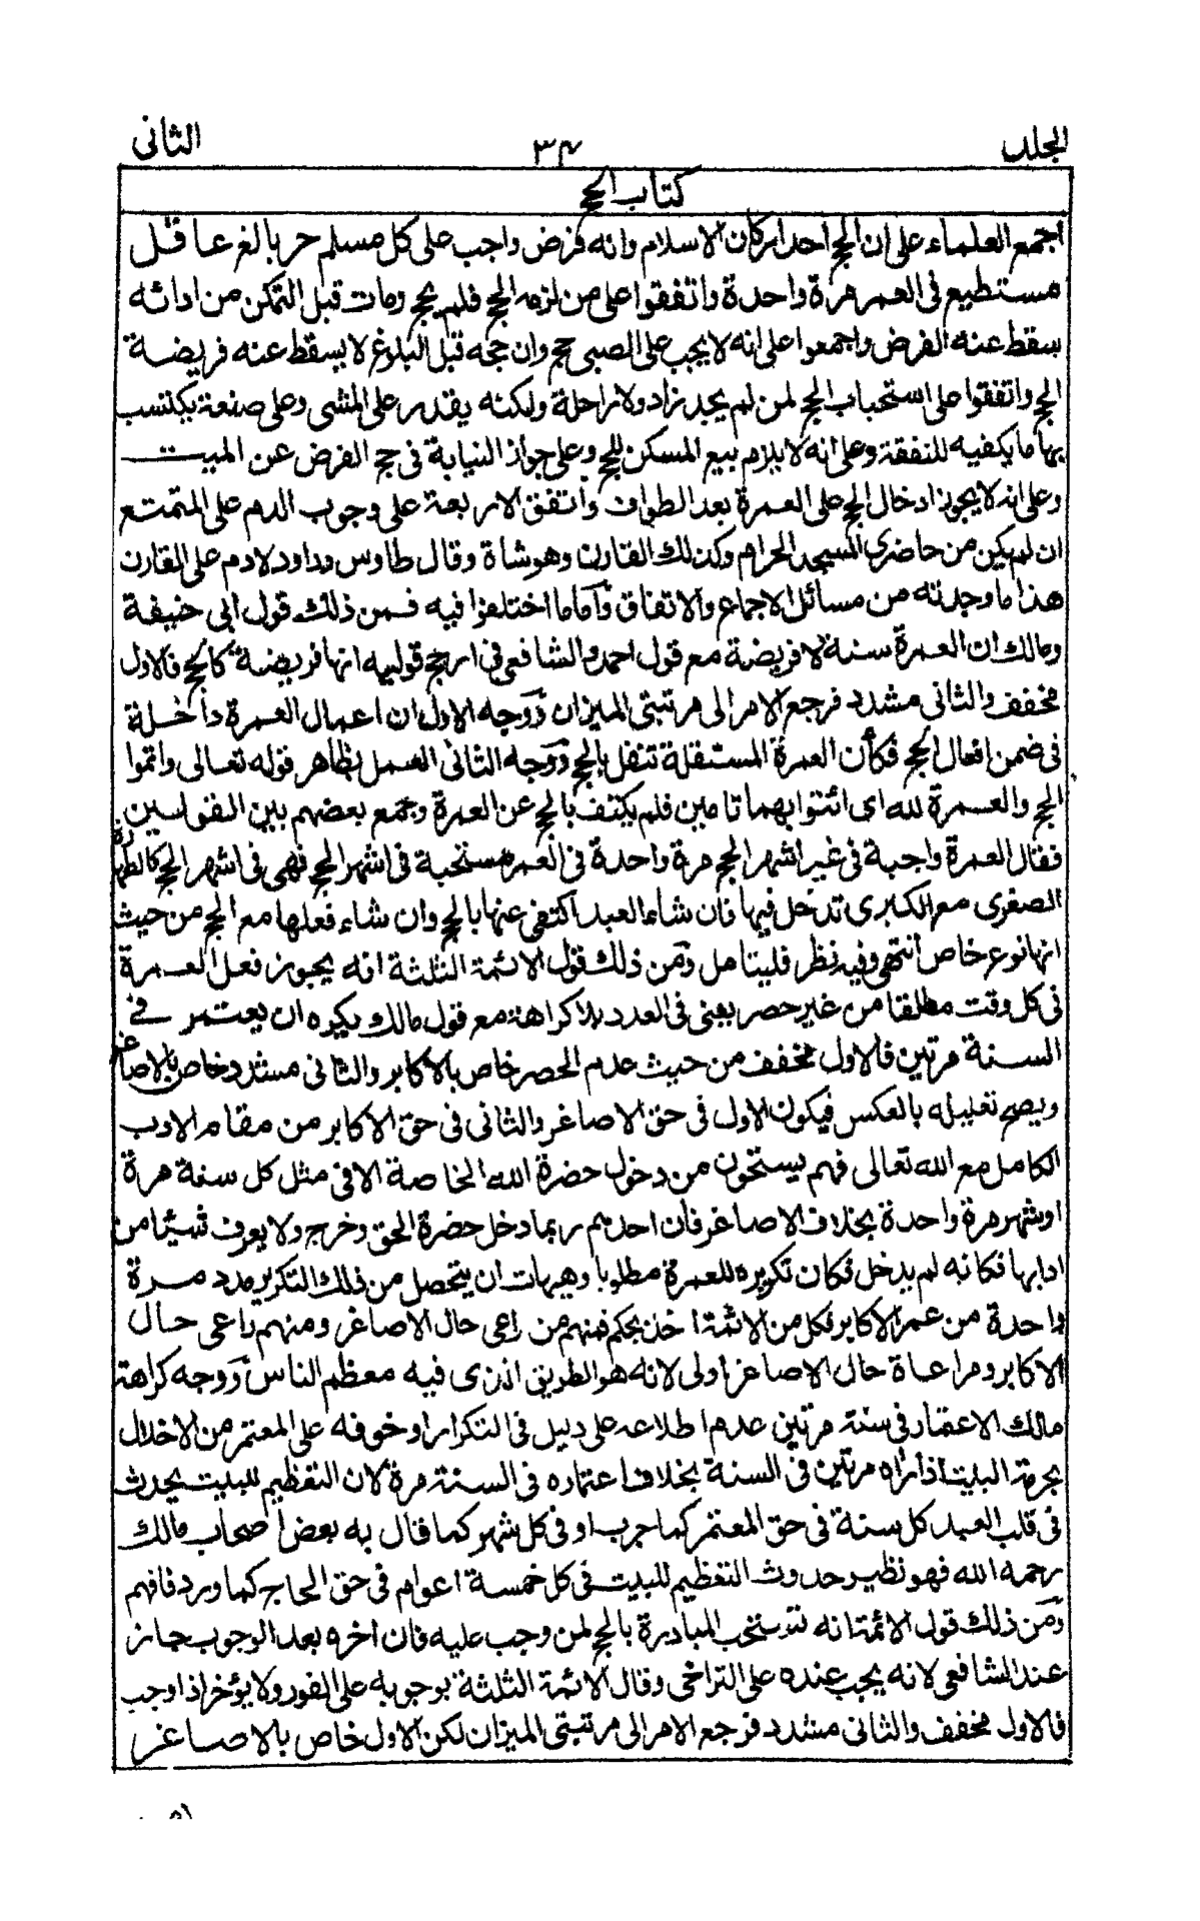 المجلد ٣٤ الثانى
كتاب الحج
اجمع العلماء على ان الحج احد اركان الاسلام وانه فرض واجب على كل مسلم حر بالغ عاقل
مستطيع فى العمر مرة واحدة واتفقوا على من لزمه الحج فلم يحج ومات قبل التمكن من ادائه
سقط عنه الفرض واجمعوا على انه لا يجب على الصبى حج وان حجه قبل البلوغ لا يسقط عنه فريضة
الحج واتفقوا على استحباب الحج لمن لم يجد زاد ولا راحلة ولكنه يقدر على المشى وعلى صنعة يكتسب
بها ما يكفيه للنفقة وعلى انه لا يلزم بيع المسكن للحج وعلى جواز النيابة فى حج الفرض عن الميت
وعلى انه لا يجوز ادخال الحج على العمرة بعد الطواف واتفق الاربعة على وجوب الدم على المتمتع
ان لم يكن من حاضرى المسجد الحرام وكذلك القارن وهو شاة وقال طاوس وداود لا دم على القارن
هذا ما وجدته من مسائل الاجماع والاتفاق وآما ما اختلفوا فيه فمن ذلك قول ابى حنيفة
ومالك ان العمرة سنة لا فريضة مع قول احمد والشافعى فى ارجح قوليه انها فريضة كالحج فالاول
مخفف والثانى مشدد فرجع الامر الى مرتبتى الميزان ووجه الاول ان اعمال العمرة داخلة
فى ضمن افعال الحج فكأن العمرة المستقلة تنفل بالحج ووجه الثانى العمل بظاهر قوله تعالى واتموا
الحج والعمرة لله اى ائتوا بهما تامين فلم يكتف بالحج عن العمرة وجمع بعضهم بين القولين
فقال العمرة واجبة فى غير اشهر الحج مرة واحدة فى العمر مستحبة فى اشهر الحج فهى فى اشهر الحج كالطهارة
الصغرى مع الكبرى تدخل فيها فان شاء العبد اكتفى عنها بالحج وان شاء فعلها مع الحج من حيث
انها نوع خاص انتهى وفيه نظر فليتامل ومن ذلك قول الائمة الثلثة انه يجوز فعل العمرة
فى كل وقت مطلقا من غير حصر يعنى فى العدد بلا كراهة مع قول مالك يكره ان يعتمر فى
السنة مرتين فالاول مخفف من حيث عدم الحصر خاص بالاكابر والثانى مشدد خاص بالاصاغر
ويصح تعليله بالعكس فيكون الاول فى حق الاصاغر والثانى فى حق الاكابر من مقام الادب
الكامل مع الله تعالى فهم يستحون من دخول حضرة الله الخاصة الا فى مثل كل سنة مرة
او شهر مرة واحدة بخلاف الاصاغر فان احدهم ربما دخل حضرة الحق وخرج ولا يعرف شيئا من
ادابها فكانه لم يدخل فكان تكريره للعمرة مطلوبا وهيهات ان يتحصل من ذلك التكرير مدد مرة
واحدة من عمر الاكابر فكل من الائمة اخذ بحكم فمنهم من راعى حال الاصاغر ومنهم راعى حال
الاكابر ومراعاة حال الاصاغر اولى لانه هو الطريق الذى فيه معظم الناس ووجه كراهة
مالك الاعتمار فى سنة مرتين عدم اطلاعه على دليل فى التكرار او خوفه على المعتمر من الاخلال
بحرمة البيت اذا زاه مرتين فى السنة بخلاف اعتماره فى السنة مرة لان التعظيم للبيت يحدث
فى قلب العبد كل سنة فى حق المعتمر كما جرب او فى كل شهر كما قال به بعض اصحاب مالك
رحمه الله فهو نظير حدوث التعظيم للبيت فى كل خمسة اعوام فى حق الحاج كما ورد فافهم
ومن ذلك قول الائمة انه تستحب المبادرة بالحج لمن وجب عليه فان اخره بعد الوجوب جاز
عند الشافعى لانه يجب عنده على التراخى وقال الائمة الثلثة بوجوبه على الفور ولا يؤخر اذا وجب
فالاول مخفف والثانى مشدد فرجع الامر الى مرتبتى الميزان لكن الاول خاص بالاصاغر